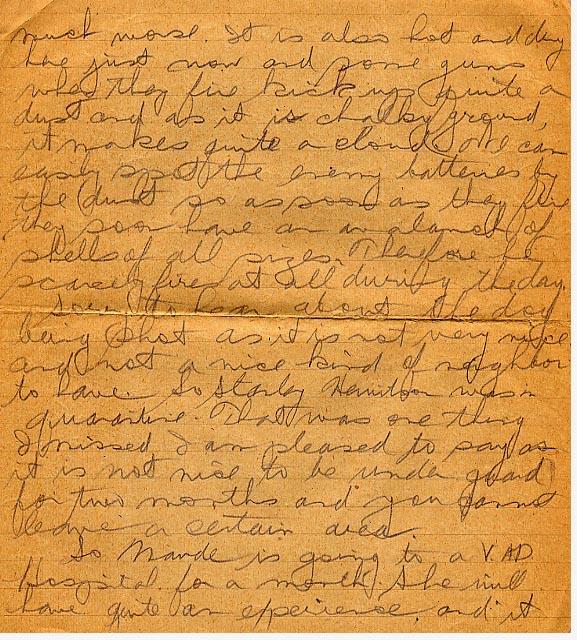 much worse. It is also hot and dry
here just now and some guns
when they fire kick up quite a
dust and as it is chalky ground,
it makes quite a cloud. We can
easily spot the enemy batteries by
the dust so as soon as they fire
they soon have an avalanch of
shells of all sizes. Therefore he
scarcely fires at all during the day.
Sorry to hear about the dog
being shot as it is not very nice
and not a nice kind of neighbor
to have. So Stanley Hamilton was in
quarantine. That was one thing
I missed I am pleased to say as
it is not nice to be under guard
for two months and you cannot
leave a certain area
So Maude is going to a V.A.D
Hospital for a month. She will
have quite an experience and it